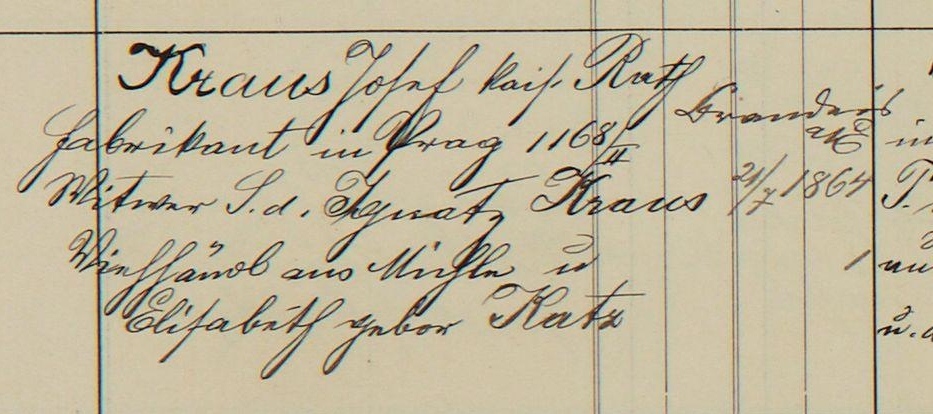 Kraus Josef kais. Rath
Fabrikant in Prag 1168/II
Witwer S. d. Ignatz Kraus
Viehhändl aus Michle u
Elisabeth gebor Katz
Brandeis
a/E
21/7 1864
1
in
T.
u.